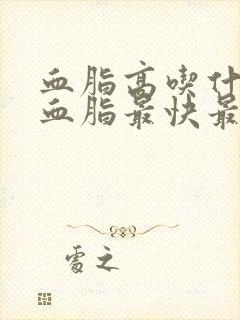 血脂高喫什
血脂最快最
处之